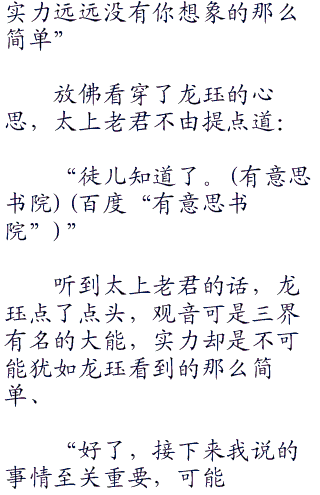 实力远远没有你想象的那么
简单”
放佛看穿了龙珏的心
思，太上老君不由提点道：
“徒儿知道了。(有意思
书院) (百度“有意思书
院”) ”
听到太上老君的话，龙
珏点了点头，观音可是三界
有名的大能，实力却是不可
能犹如龙珏看到的那么简
单、
“好了，接下来我说的
事情至关重要，可能